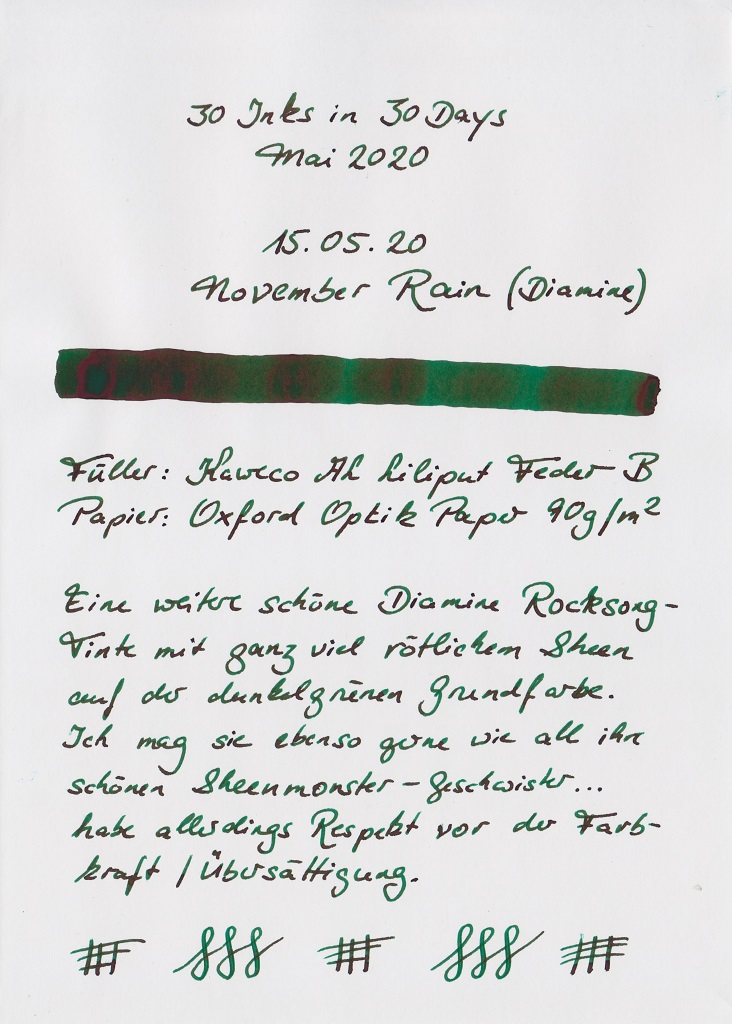 30 Inks in 30 Days
Mai 2020
15.05.20
November Rain (Diamine)
Füller: Kaweco AL Liliput Feder B
Papier: Oxford Optik Paper 90g/m²
Eine weitere schöne Diamine Rocksong-
Tinte mit ganz viel rötlichem Sheen
auf der dunkelgrünen Grundfarbe.
Ich mag sie ebenso gerne wie all ihre
schönen Sheenmonster-Geschwister...
habe allerdings Respekt vor der Farb-
kraft / Übersättigung.